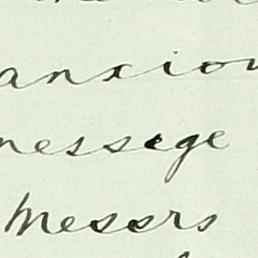 anxiou
messege
Messrs